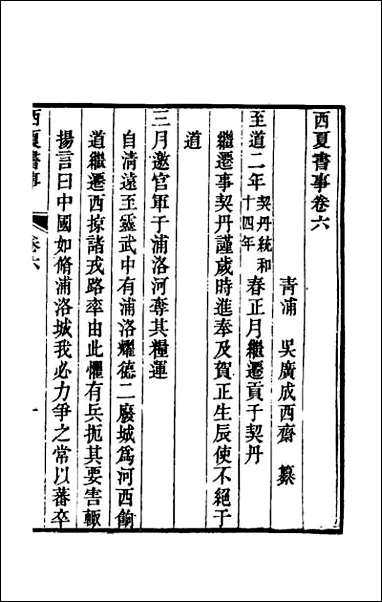 西夏書事卷六
青浦 吳廣成西齋 纂
至道二年契丹統和十四年春正月繼遷貢于契丹
繼遷事契丹謹歲時進奉及賀正生辰使不絕于
道
三月邀官軍于浦洛河奪其糧運
自清遠至靈武中有浦洛耀德二廢城爲河西餉
道繼遷西掠諸戎路率由此懼有兵扼其要害輙
揚言曰中國如脩浦洛城我必力爭之常以蕃卒
西夏書事 卷六 一